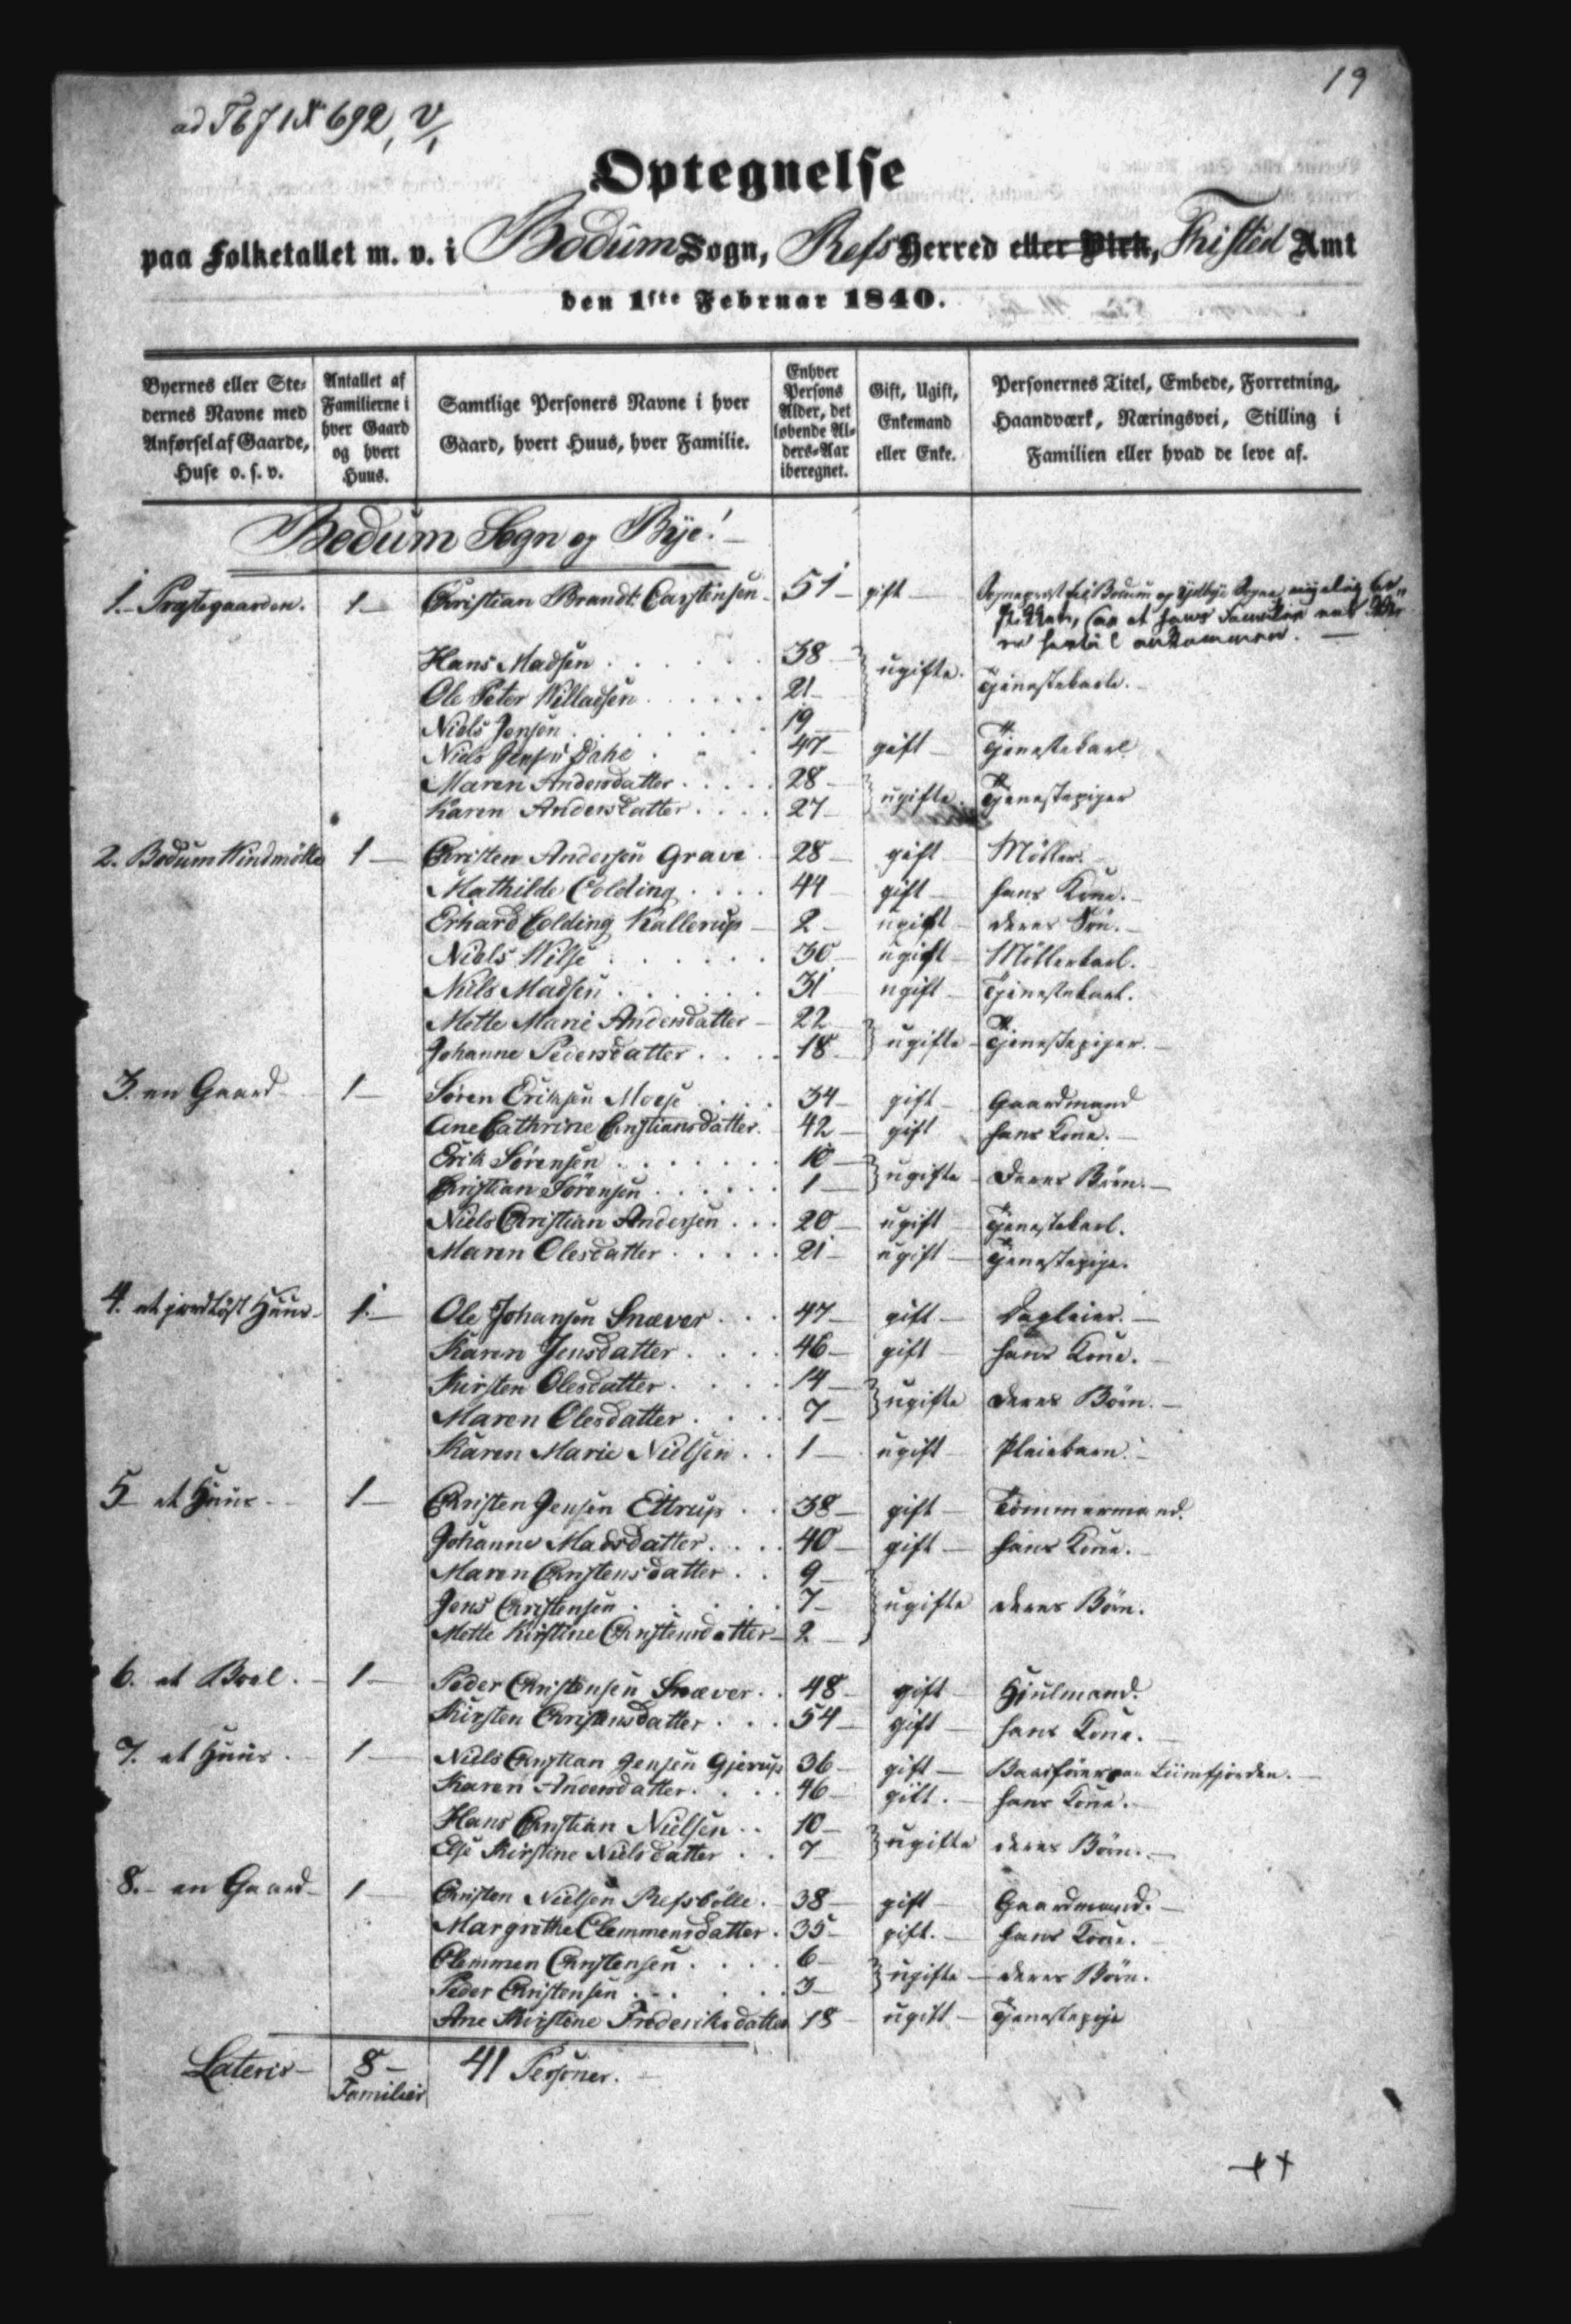 19
ad T b J 1 No 692,
Optegnelse
paa Folketallet m. v. i Bodum Sogn, Refs Herred eller Birk, Thisted Amt
den 1ste Februar 1840.
Byernes eller Ste-
dernes Navne med
Anførsel af Gaarde,
Huse o. s. v.
Antallet af
Familierne i
hver Gaard
og hvert
Huus.
Samtlige Personers Navne i hver
Gaard, hvert Huus, hver Familie.
Enhver
Persons
Alder, det
løbende Al-
ders-Aar
iberegnet.
Gift, Ugift,
Enkemand
eller Enke.
Personernes Titel, Embede, Forretning,
Haandværk, Næringsvei, Stilling i
Familien eller hvad de leve af.
Bodum Sogn og Bÿe!
1. Præstegaarden. 1 Christian Brandt Carstensen 51 gift Sognepræst til Bodum og Ydbye Sogne, nyelig be-
skikket, saa at hans Familie
er hertil ankommen.
Hans Madsen 38 ugifte.
Ole Peter Willadsen 21 Tjenestekarle.
Niels Jensen 19
Niels Jensen Dahl 47 gift Tjenestekarl
Maren Andersdatter 28 ugifte. Tjenestepiger
Karen Andersdatter 27
2. Bodum Windmølle 1 Christen Andersen Grave 28 gift Møller.
Mathilde Colding 44 gift hans Kone.
Erhard Colding Kallerup 2 ugift deres Søn.
Niels Wilse 30 ugift Møllerkarl.
Niels Madsen 31 ugift Tjenestekarl.
Mette Marie Andersdatter 22 ugifte Tjenestepiger.
Johanne Pedersdatter 18
3. en Gaard 1 Søren Eriksen Moese 34 gift Gaardmand
Ane Cathrine Christiansdatter 42 gift hans Kone.
Erik Sørensen 10 ugifte deres Børn.
Christian Sørensen 1
Niels Christian Andersen 20 ugift Tjenestekarl.
Maren Olesdatter 21 ugift Tjenestepige.
4. et jordløst Huus 1. Ole Johansen Snæver 47 gift Dagleier.
Karen Jensdatter 46 gift hans Kone.
Kirsten Olesdatter 14 ugifte deres Børn.
Maren Olesdatter 7
Karen Marie Nielsen 1 ugift Pleiebarn.
5 et Huus 1 Christen Jensen Ettrup 38 gift Tømmermand.
Johanne Madsdatter 40 gift hans Kone.
Maren Christensdatter 9
Jens Christensen 7 ugifte deres Børn.
Mette Kirstine Christensdatter 2
6. et Boel 1 Peder Christensen Snæver 48 gift Hjulmand.
Kirsten Christensdatter 54 gift hans Kone.
7. et Huus 1 Niels Christian Jensen Gjerup 36 gift Baadfører paa Liimfjorden.
Karen Andersdatter 46 gift hans Kone.
Hans Christian Nielsen 10 ugifte deres Børn.
Else Kirstine Nielsdatter 7
8. en Gaard 1 Christen Nielsen Refsbølle 38 gift Gaardmand.
Margrethe Clemmensdatter 35 gift. hans Kone.
Clemmen Christensen 6 ugifte deres Børn.
Peder Christensen 3
Ane Kirstine Frederiksdatter 18 ugift Tjenestepige
Lateris 8 41 Personer.
Familier